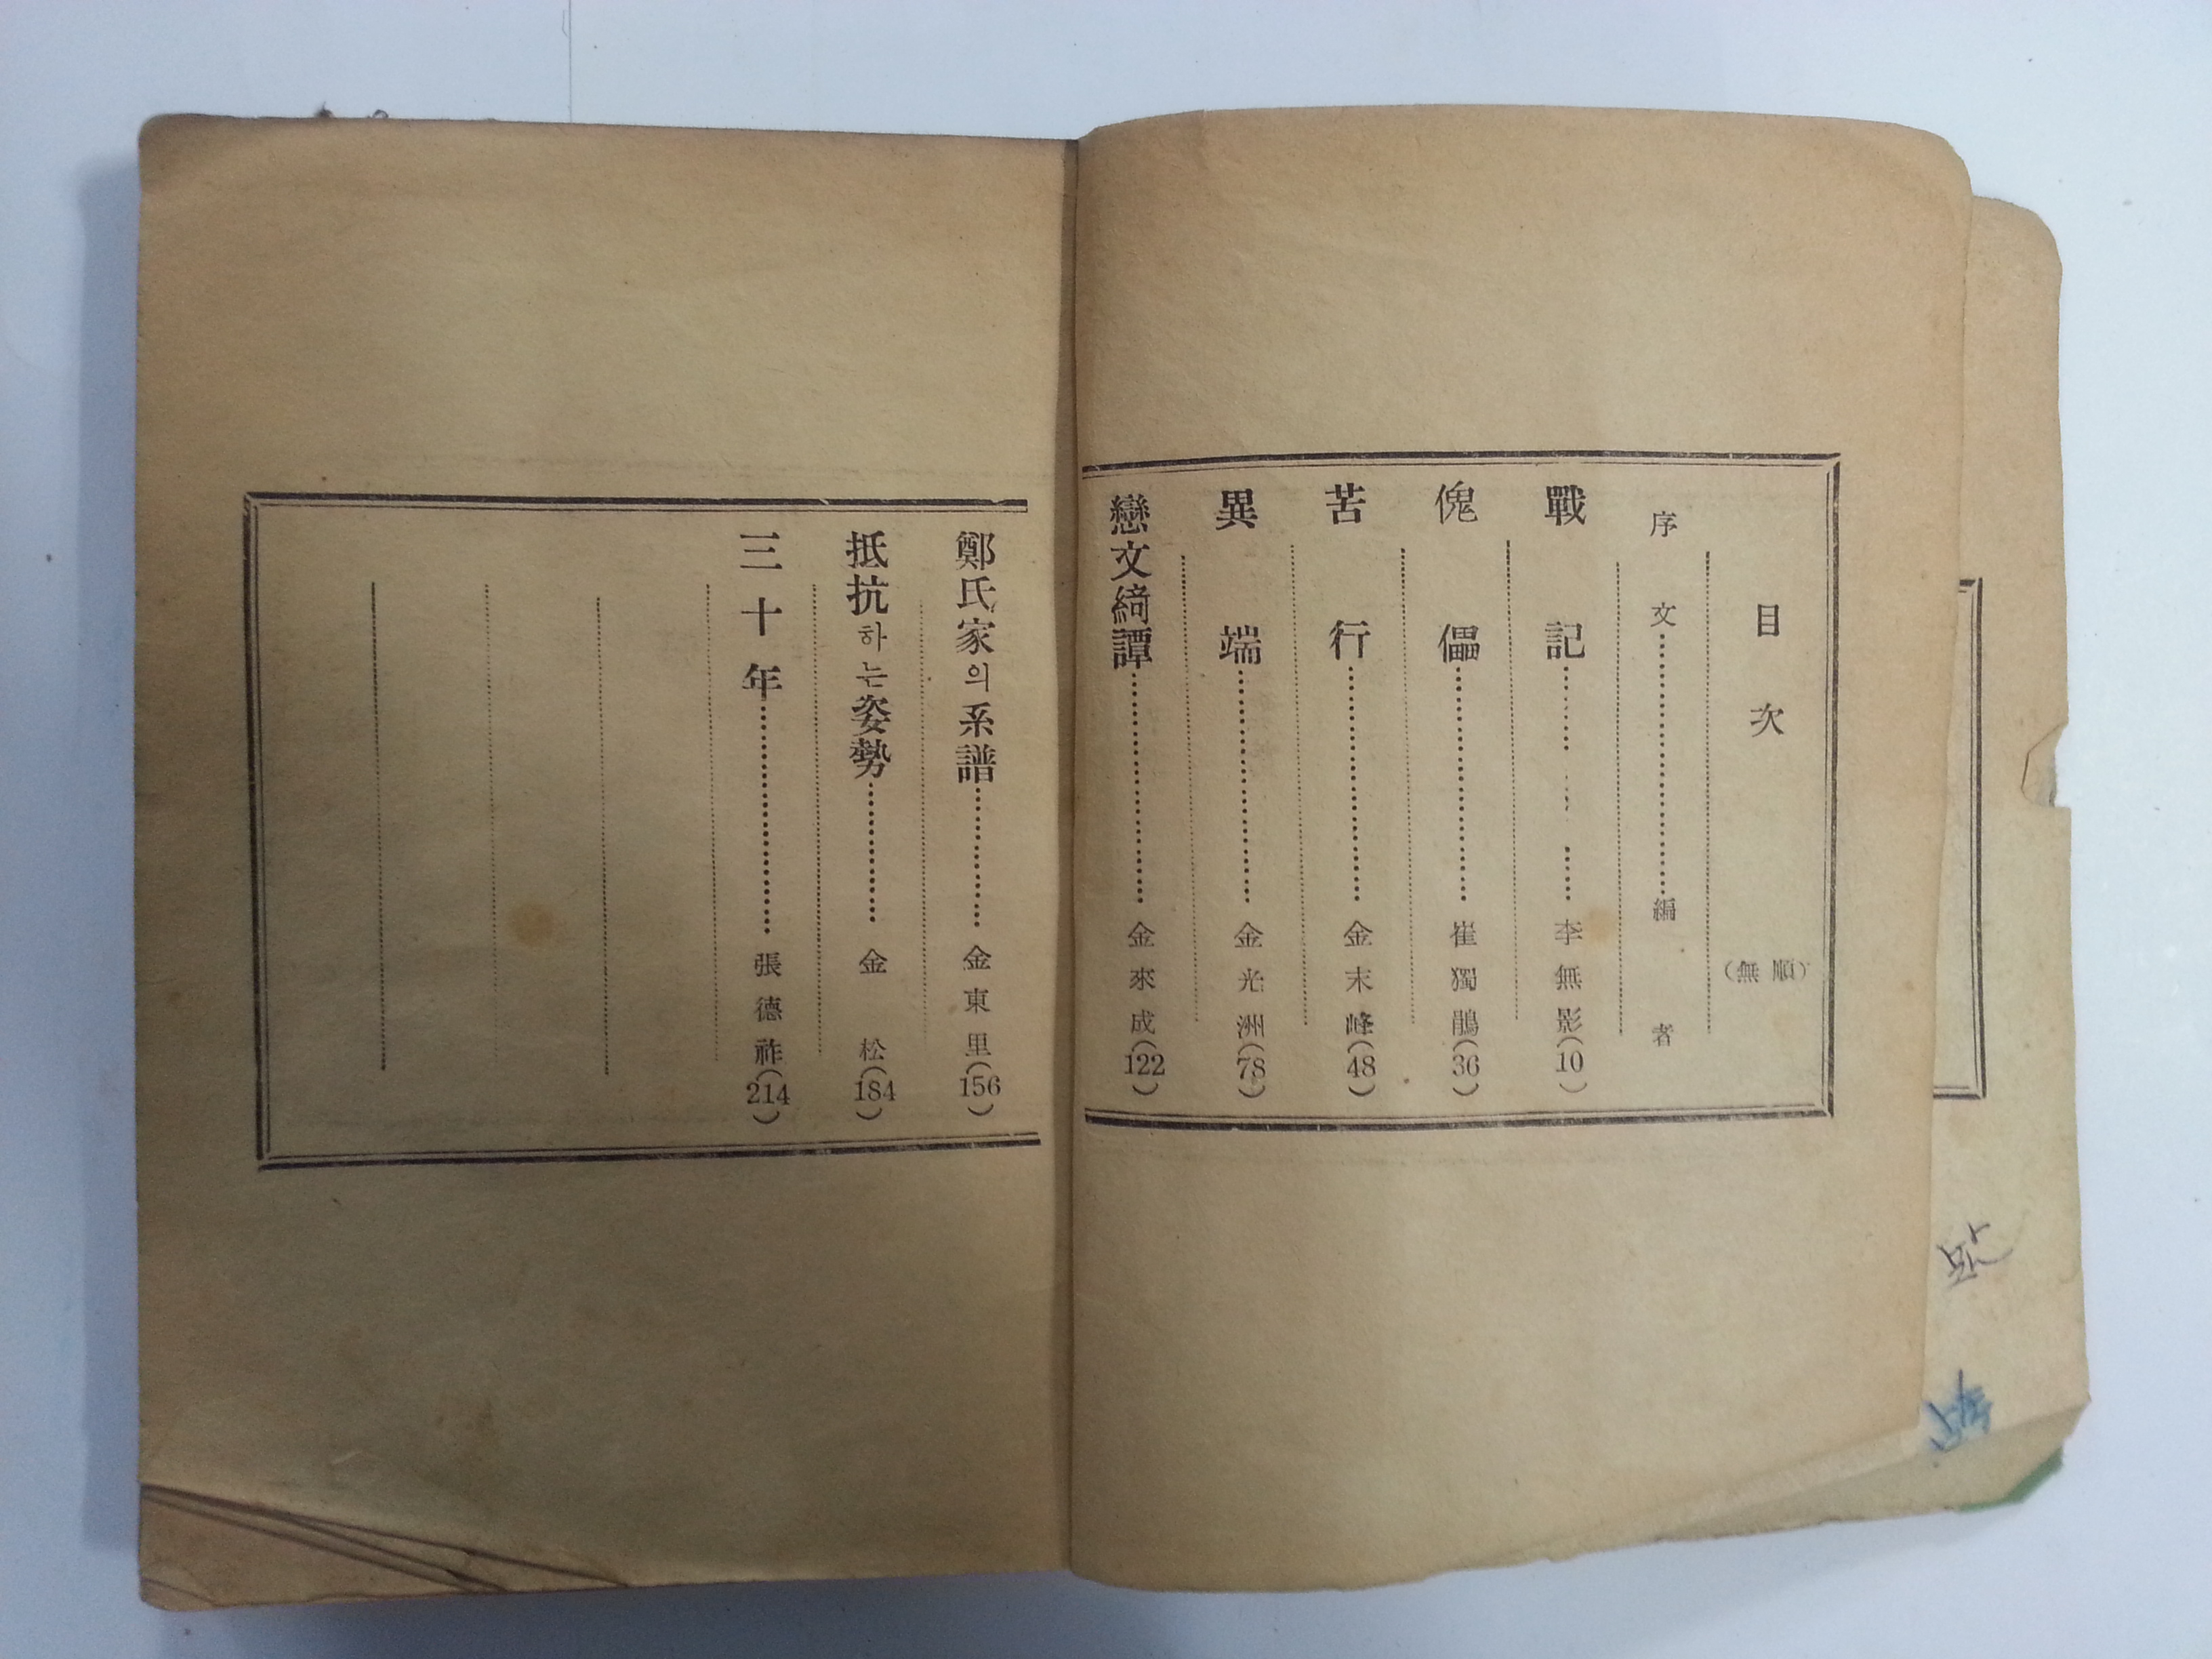 目次 (無順)
序文 編者
戰記 李無影(10)
傀儡 崔獨鵑(36)
苦行 金末峰(48)
異端 金光洲(78)
戀文綺譚 金來成(122)
鄭氏家의系譜 金東里(156)
抵抗하는姿勢 金松(184)
三十年 張德祚(214)